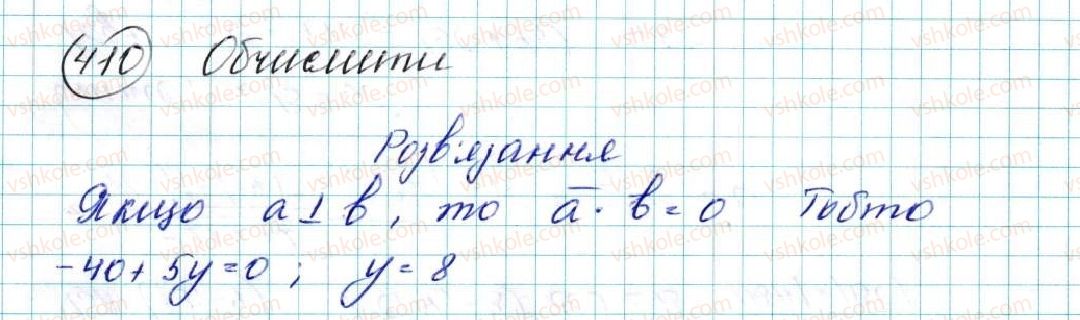 410 Обчислити
Розв'язання
Якщо a ⊥ b, то a̅ · b̅ = 0 Тобто
-40 + 5y = 0 ; y = 8